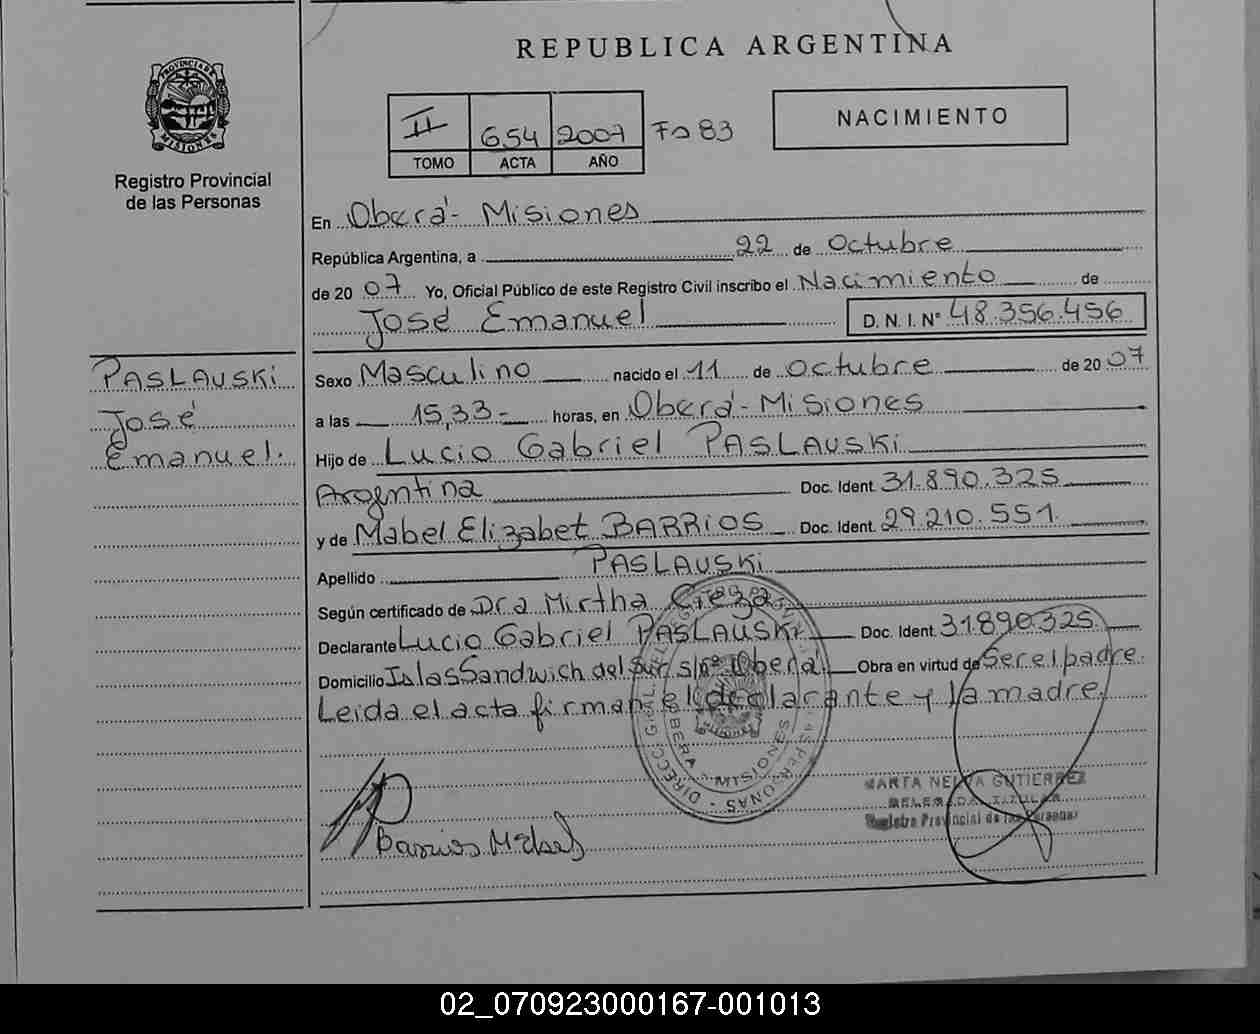 REPUBLICA ARGENTINA
PROVINCIA DE MISIONES
Registro Provincial
de las Personas
II 654 2007 Fo 83
TOMO ACTA AÑO
NACIMIENTO
En Oberá - Misiones
República Argentina, a 22 de Octubre
de 2007 Yo, Oficial Público de este Registro Civil inscribo el Nacimiento de
José Emanuel D. N. I. N° 48.356.456
PASLAUSKi
José
Emanuel.
Sexo Masculino nacido el 11 de Octubre de 2007
a las 15,33- horas, en Oberá - Misiones
Hijo de Lucio Gabriel PASLAUSKi
Argentina Doc. Ident. 31.890.325
y de Mabel Elizabet BARRiOS Doc. Ident. 29.210.551.
Apellido PASLAUSKi
Según certificado de Dra Mirtha Cieza
Declarante Lucio Gabriel PASLAUSKi Doc. Ident. 31.890.325.
Domicilio Islas Sandwich del Sur s/nº Oberá Obra en virtud de Ser el padre.
Leida el acta firman el declarante y la madre.
OBERA - MISIONES
MARTA NELVA GUTIERREZ
DELEGADA TITULAR
Registro Provincial de las Personas
Barrios Mabel
02_070923000167-001013